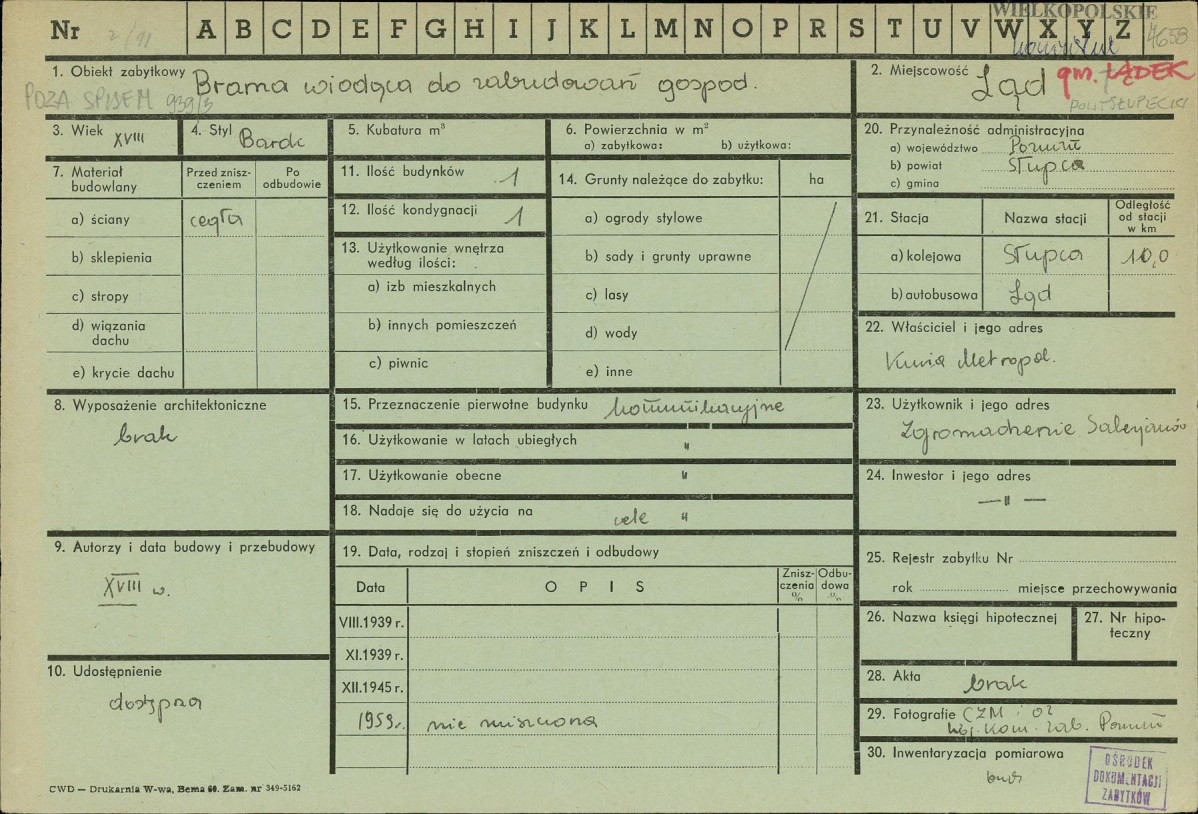 Nr 2/91 A B C D E F G H I J K L M N O P R S T U V W X Y Z
WIELKOPOLSKIE
4658
1. Obiekt zabytkowy Brama wiodąca do zabudowań gospod.
POZA SPISEM 939/3
2. Miejscowość Ląd gm. LĄDEK
3. Wiek XVIII
4. Styl Barok
5. Kubatura m³
6. Powierzchnia w m²
a) zabytkowa: b) użytkowa:
20. Przynależność administracyjna
a) województwo Poznań
b) powiat Słupca
c) gmina
7. Materiał budowlany
Przed znisz-czeniem
Po odbudowie
a) ściany cegła
b) sklepienia
c) stropy
d) wiązania dachu
e) krycie dachu
11. Ilość budynków 1
12. Ilość kondygnacji 1
13. Użytkowanie wnętrza
według ilości:
a) izb mieszkalnych
b) innych pomieszczeń
c) piwnic
14. Grunty należące do zabytku: ha
a) ogrody stylowe
b) sady i grunty uprawne
c) lasy
d) wody
e) inne
21. Stacja Nazwa stacji
Odległość
od stacji
w km
a) kolejowa Słupca 10,0
b) autobusowa Ląd
22. Właściciel i jego adres
Kuria Metropol.
8. Wyposażenie architektoniczne
brak
15. Przeznaczenie pierwotne budynku komunikacyjne
16. Użytkowanie w latach ubiegłych "
17. Użytkowanie obecne "
18. Nadaje się do użycia na cele "
23. Użytkownik i jego adres
Zgromadzenie Salezjanów
24. Inwestor i jego adres
— " —
9. Autorzy i data budowy i przebudowy
XVIII w.
19. Data, rodzaj i stopień zniszczeń i odbudowy
Data OPIS
Znisz-
czenia
%
Odbu-
dowa
%
VIII.1939 r.
XI.1939 r.
XII.1945 r.
1959 r. nie zniszczona
25. Rejestr zabytku Nr
rok miejsce przechowywania
26. Nazwa księgi hipotecznej
27. Nr hipo-
teczny
10. Udostępnienie
dostępna
28. Akta brak
29. Fotografie CZM i OZ
Woj. Kons. zab. Poznań
30. Inwentaryzacja pomiarowa
brak
OŚRODEK
DOKUMENTACJI
ZABYTKÓW
CWD — Drukarnia W-wa, Bema 60. Zam. nr 349-5162